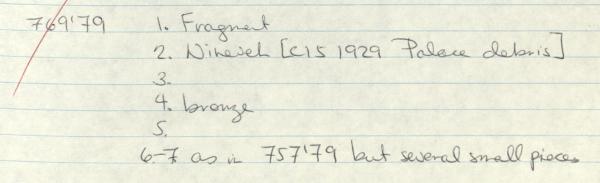 769'79 1. Fragment
2. Nineveh [C15 1929 Palace debris]
3.
4. bronze
5.
6-7 as in 757'79 but several small pieces